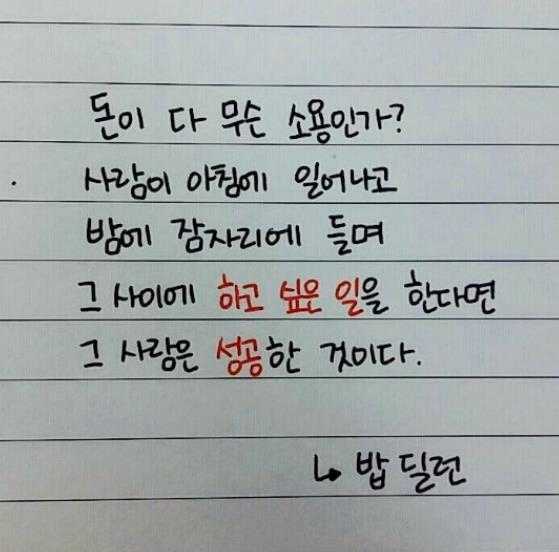 돈이 다 무슨 소용인가?
사람이 아침에 일어나고
밤에 잠자리에 들며
그 사이에 하고 싶은 일을 한다면
그 사람은 성공한 것이다.
↳ 밥 딜런